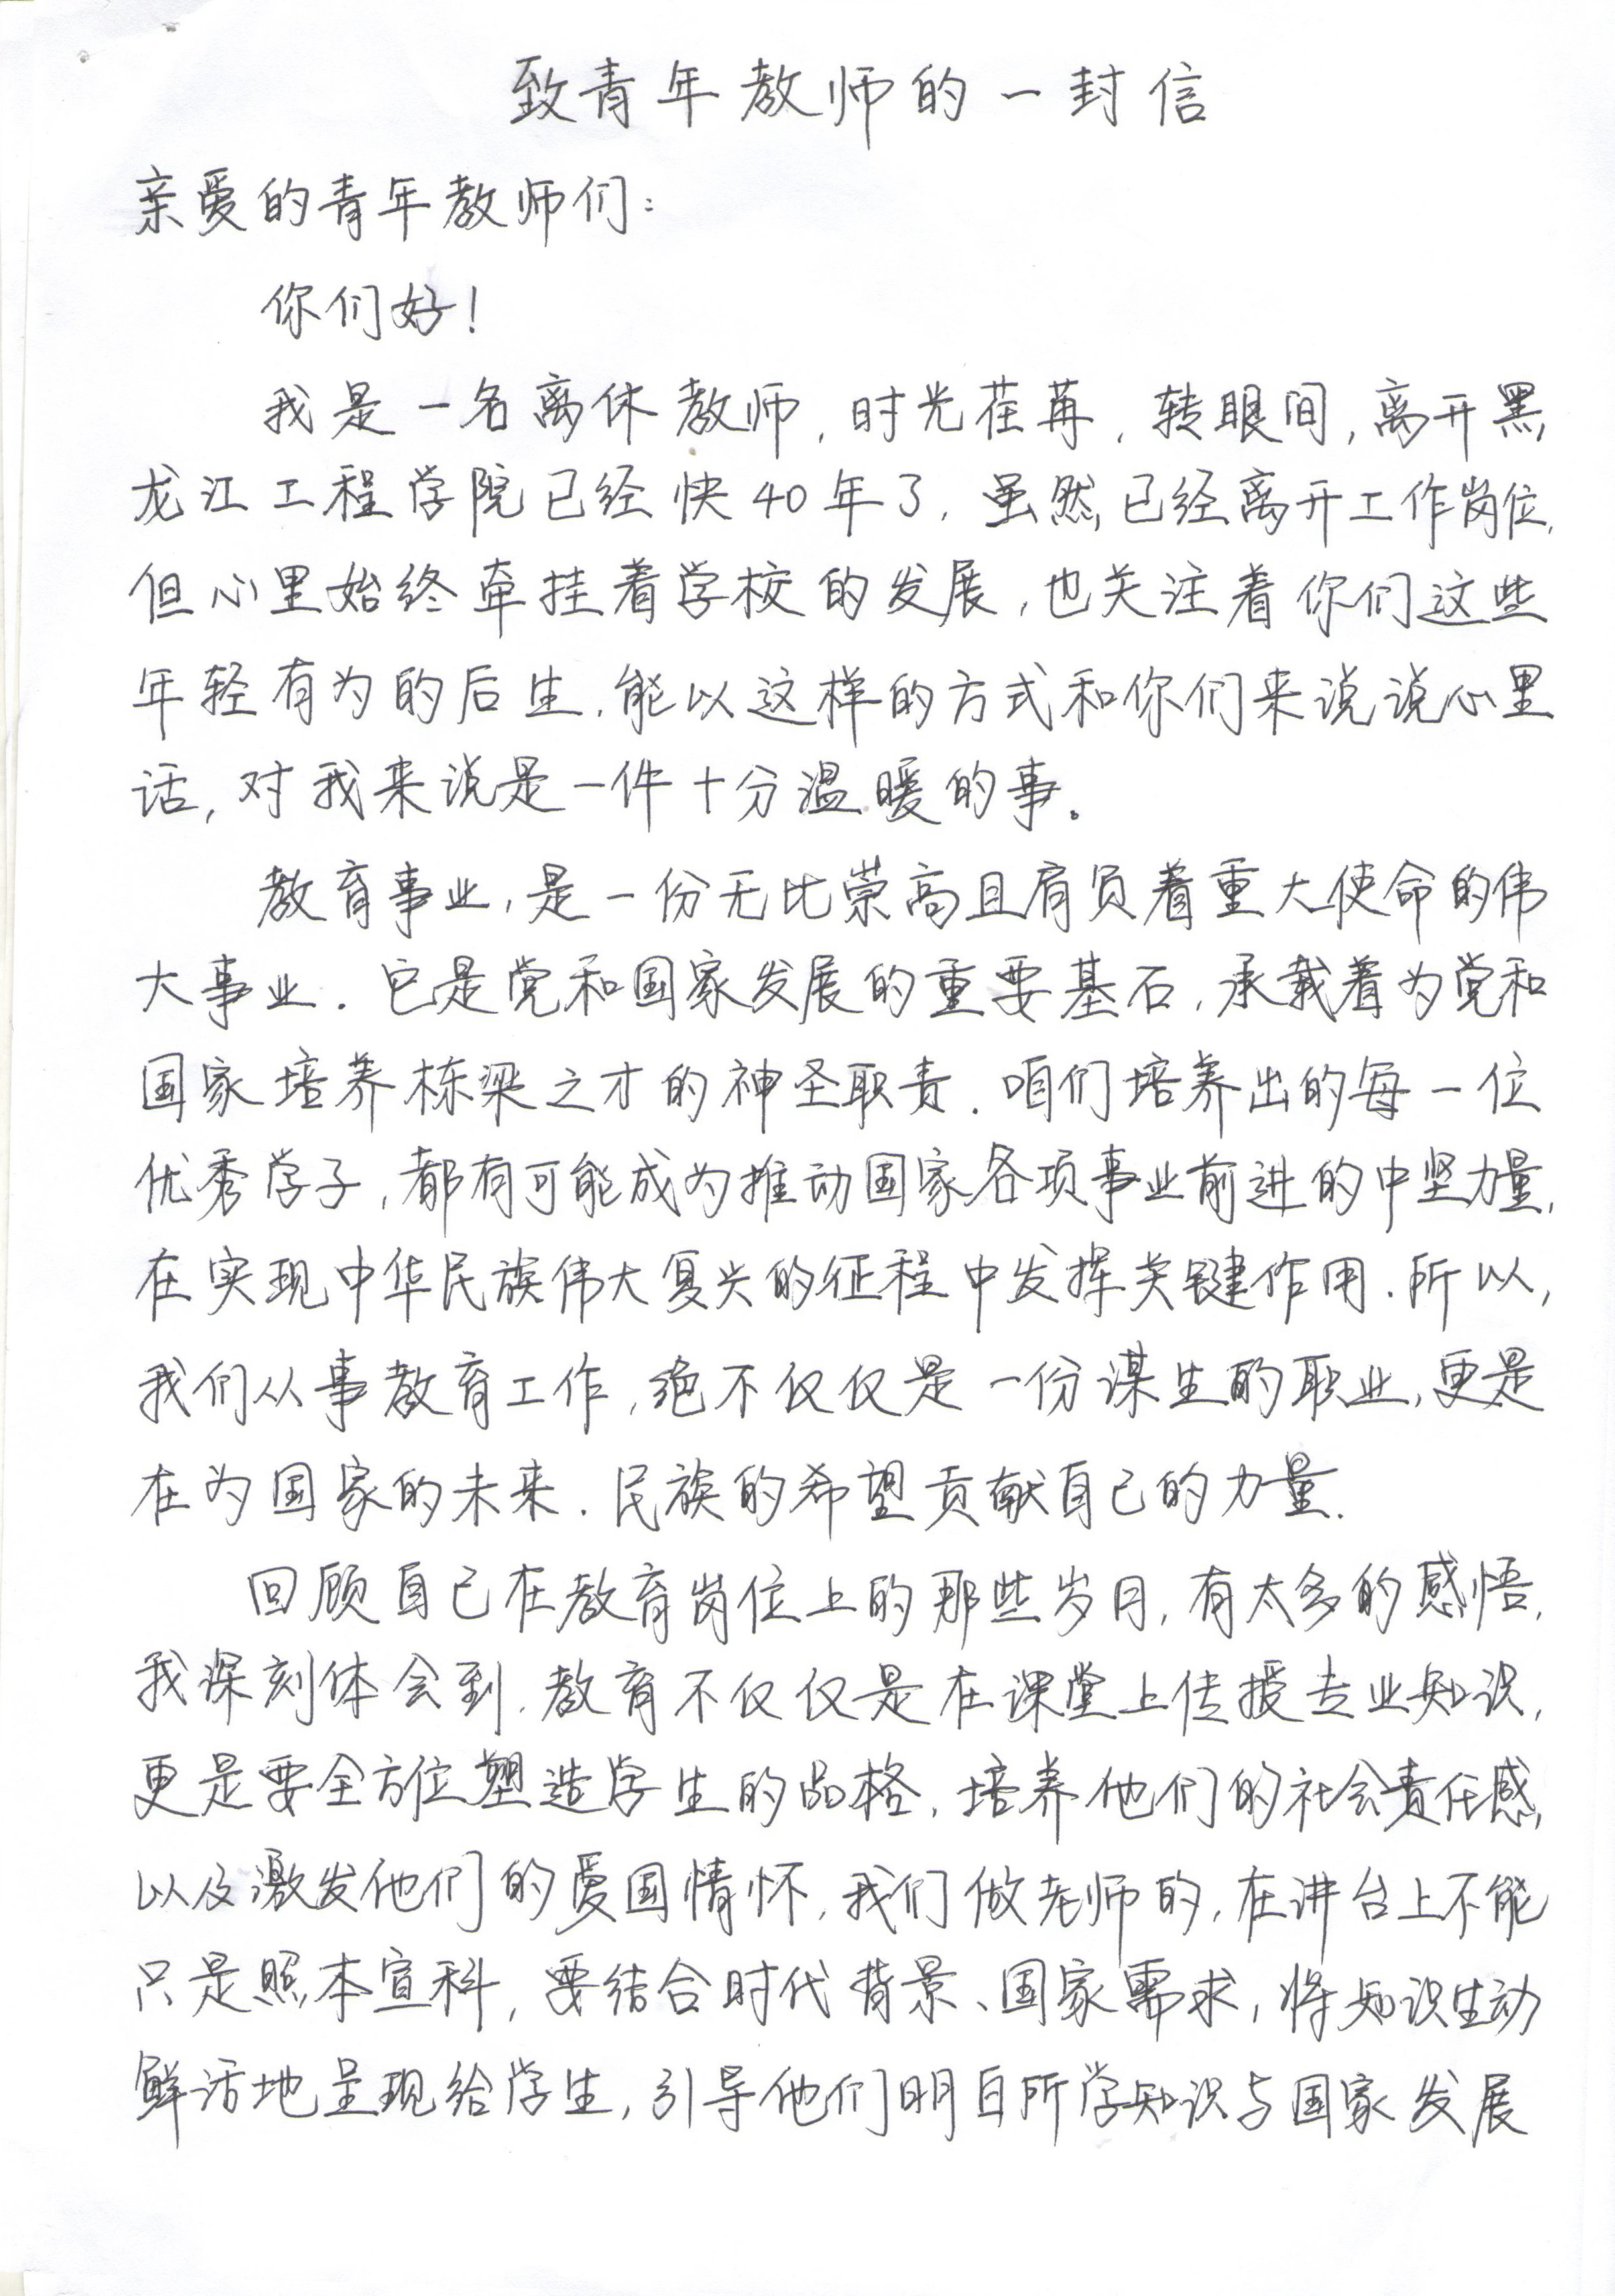 致青年教师的一封信
亲爱的青年教师们:
你们好!
我是一名离休教师,时光荏苒,转眼间,离开黑
龙江工程学院已经快40年了,虽然已经离开工作岗位,
但心里始终牵挂着学校的发展,也关注着你们这些
年轻有为的后生,能以这样的方式和你们来说说心里
话,对我来说是一件十分温暖的事。
教育事业,是一份无比崇高且肩负着重大使命的伟
大事业.它是党和国家发展的重要基石,承载着为党和
国家培养栋梁之才的神圣职责.咱们培养出的每一位
优秀学子,都有可能成为推动国家各项事业前进的中坚力量,
在实现中华民族伟大复兴的征程中发挥关键作用.所以,
我们从事教育工作,绝不仅仅是一份谋生的职业,更是
在为国家的未来.民族的希望贡献自己的力量.
回顾自己在教育岗位上的那些岁月,有太多的感悟,
我深刻体会到,教育不仅仅是在课堂上传授专业知识,
更是要全方位塑造学生的品格,培养他们的社会责任感,
以及激发他们的爱国情怀,我们做老师的,在讲台上不能
只是照本宣科,要结合时代背景、国家需求,将知识生动
鲜活地呈现给学生,引导他们明白所学知识与国家发展